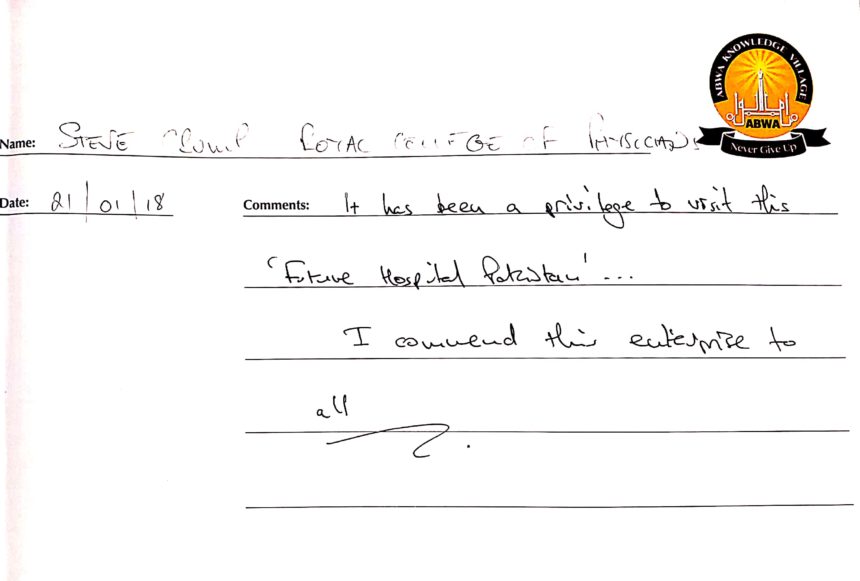 ABWA KNOWLEDGE VILLAGE
ABWA
Never Give Up
Name: STEVE ROYAL COLLEGE OF PHYSICIANS
Date: 21/01/18
Comments: It has been a privilege to visit this
'Future Hospital Pakistan' ...
I commend this enterprise to
all